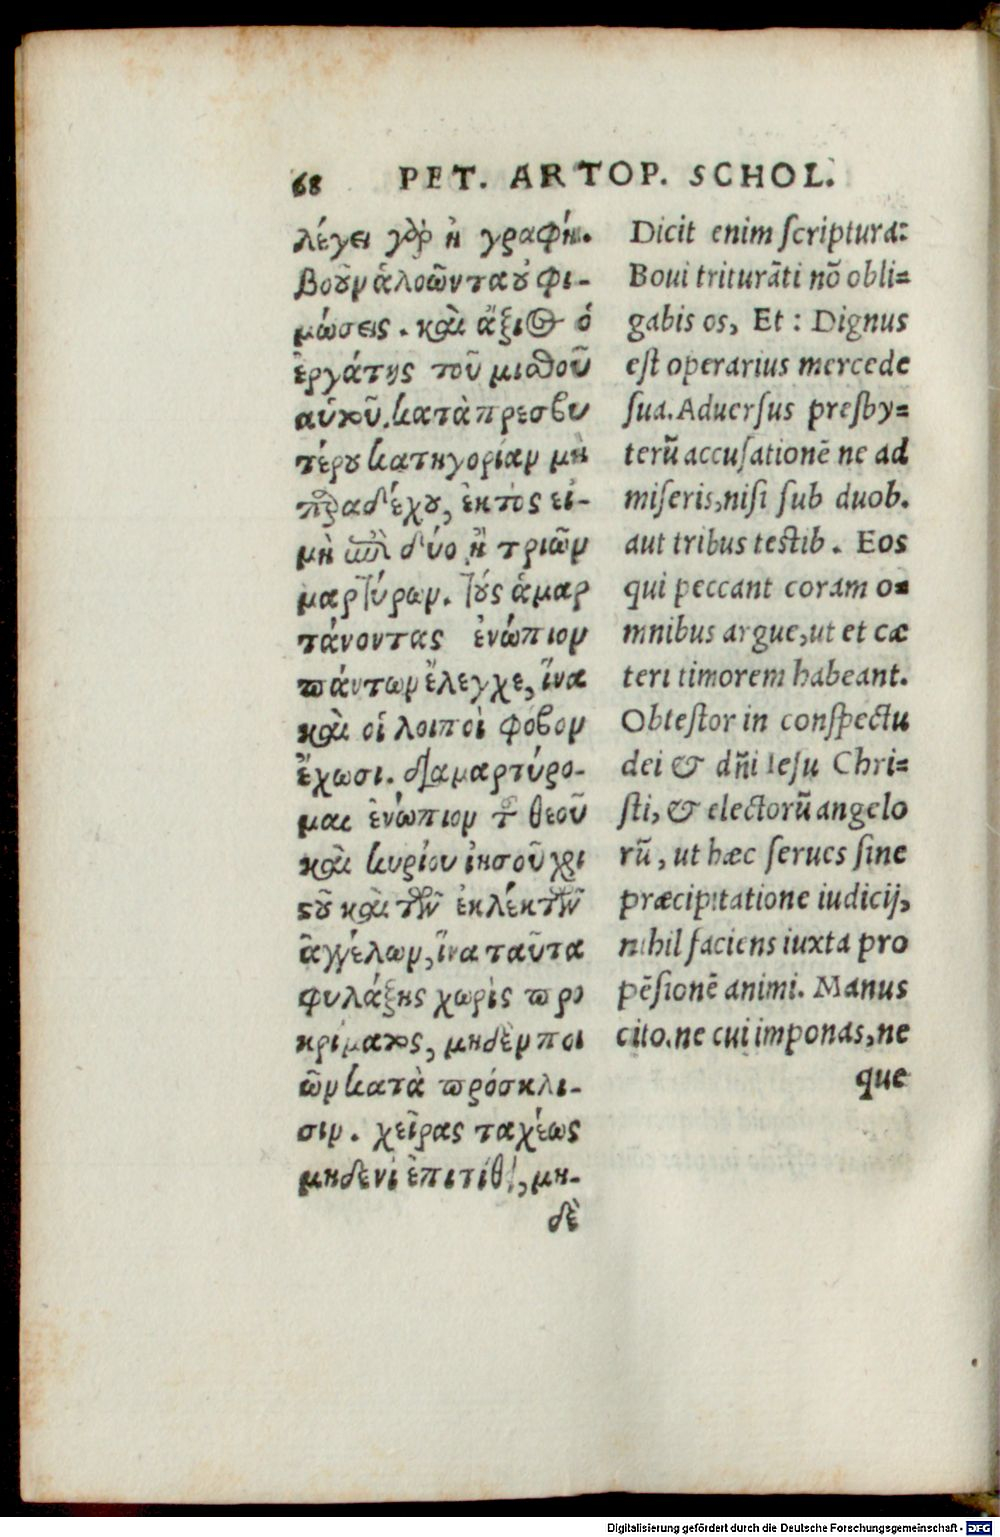 68 PET. ARTOP. SCHOL.
λέγει γὰρ ἡ γραφή.
βοῦν ἀλοῶντα οὐ φι-
μώσεις. καὶ ἄξιος ὁ
ἐργάτης τοῦ μισθοῦ
αὐτοῦ. κατὰ πρεσβυ
τέρου κατηγορίαν μὴ
παραδέχου, ἐκτὸς εἰ-
μὴ ἐπὶ δύο ἢ τριῶν
μαρτύρων. τοὺς ἁμαρ
τάνοντας ἐνώπιον
πάντων ἔλεγχε, ἵνα
καὶ οἱ λοιποὶ φόβον
ἔχωσι. διαμαρτύρο-
μαι ἐνώπιον τοῦ θεοῦ
καὶ κυρίου ἰησοῦ χρι
στοῦ καὶ τῶν ἐκλέκτῶν
ἀγγέλων, ἵνα ταῦτα
φυλάξῃς χωρὶς προ
κρίματος, μηδὲν ποι
ῶν κατὰ πρόσκλι-
σιν. χεῖρας ταχέως
μηδενὶ ἐπιτίθει, μη-
δὲ
Dicit enim ſcriptura:
Boui triturāti nō obli=
gabis os, Et: Dignus
eſt operarius mercede
ſua. Aduerſus presby=
terū accuſationē ne ad
miſeris, niſi ſub duob.
aut tribus teſtib. Eos
qui peccant coram o=
mnibus argue, ut et cæ
teri timorem habeant.
Obteſtor in conſpectu
dei & dñi Ieſu Chri=
ſti, & electorū angelo
rū, ut hæc ſerues ſine
præcipitatione iudicij,
nihil faciens iuxta pro
pēſionē animi. Manus
cito. ne cui imponas, ne
que
Digitalisierung gefördert durch die Deutsche Forschungsgemeinschaft - DFG